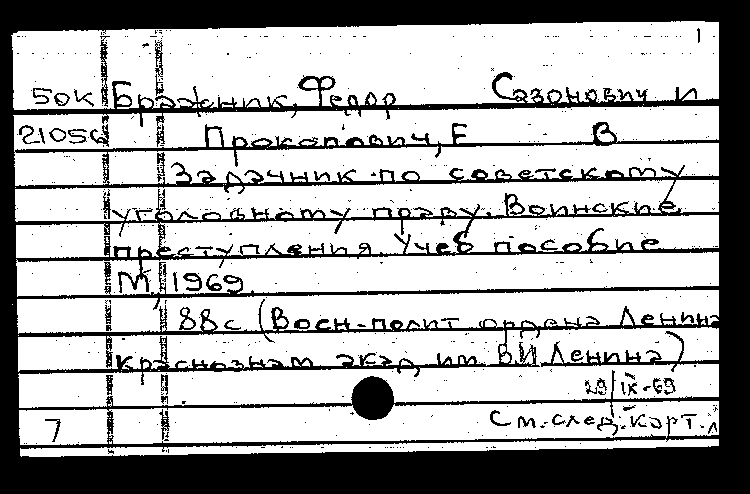 1
50К Бражник, Федор Сазонович и
21056 Прокопович, Е В
Задачник по советскому
уголовному праву. Воинские
преступления. Учеб пособие
М, 1969.
88с (Воен-полит ордена Ленина
краснознам акад им В.И Ленина)
29/IX-69
7 См. след. карт.